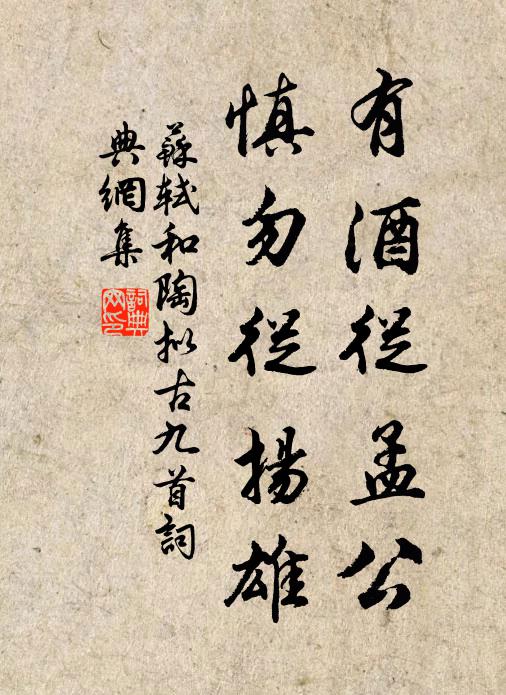 有酒從孟公
慎勿從揚雄
蘇軾和陶拟古九首詞
典網集
詞典
网印